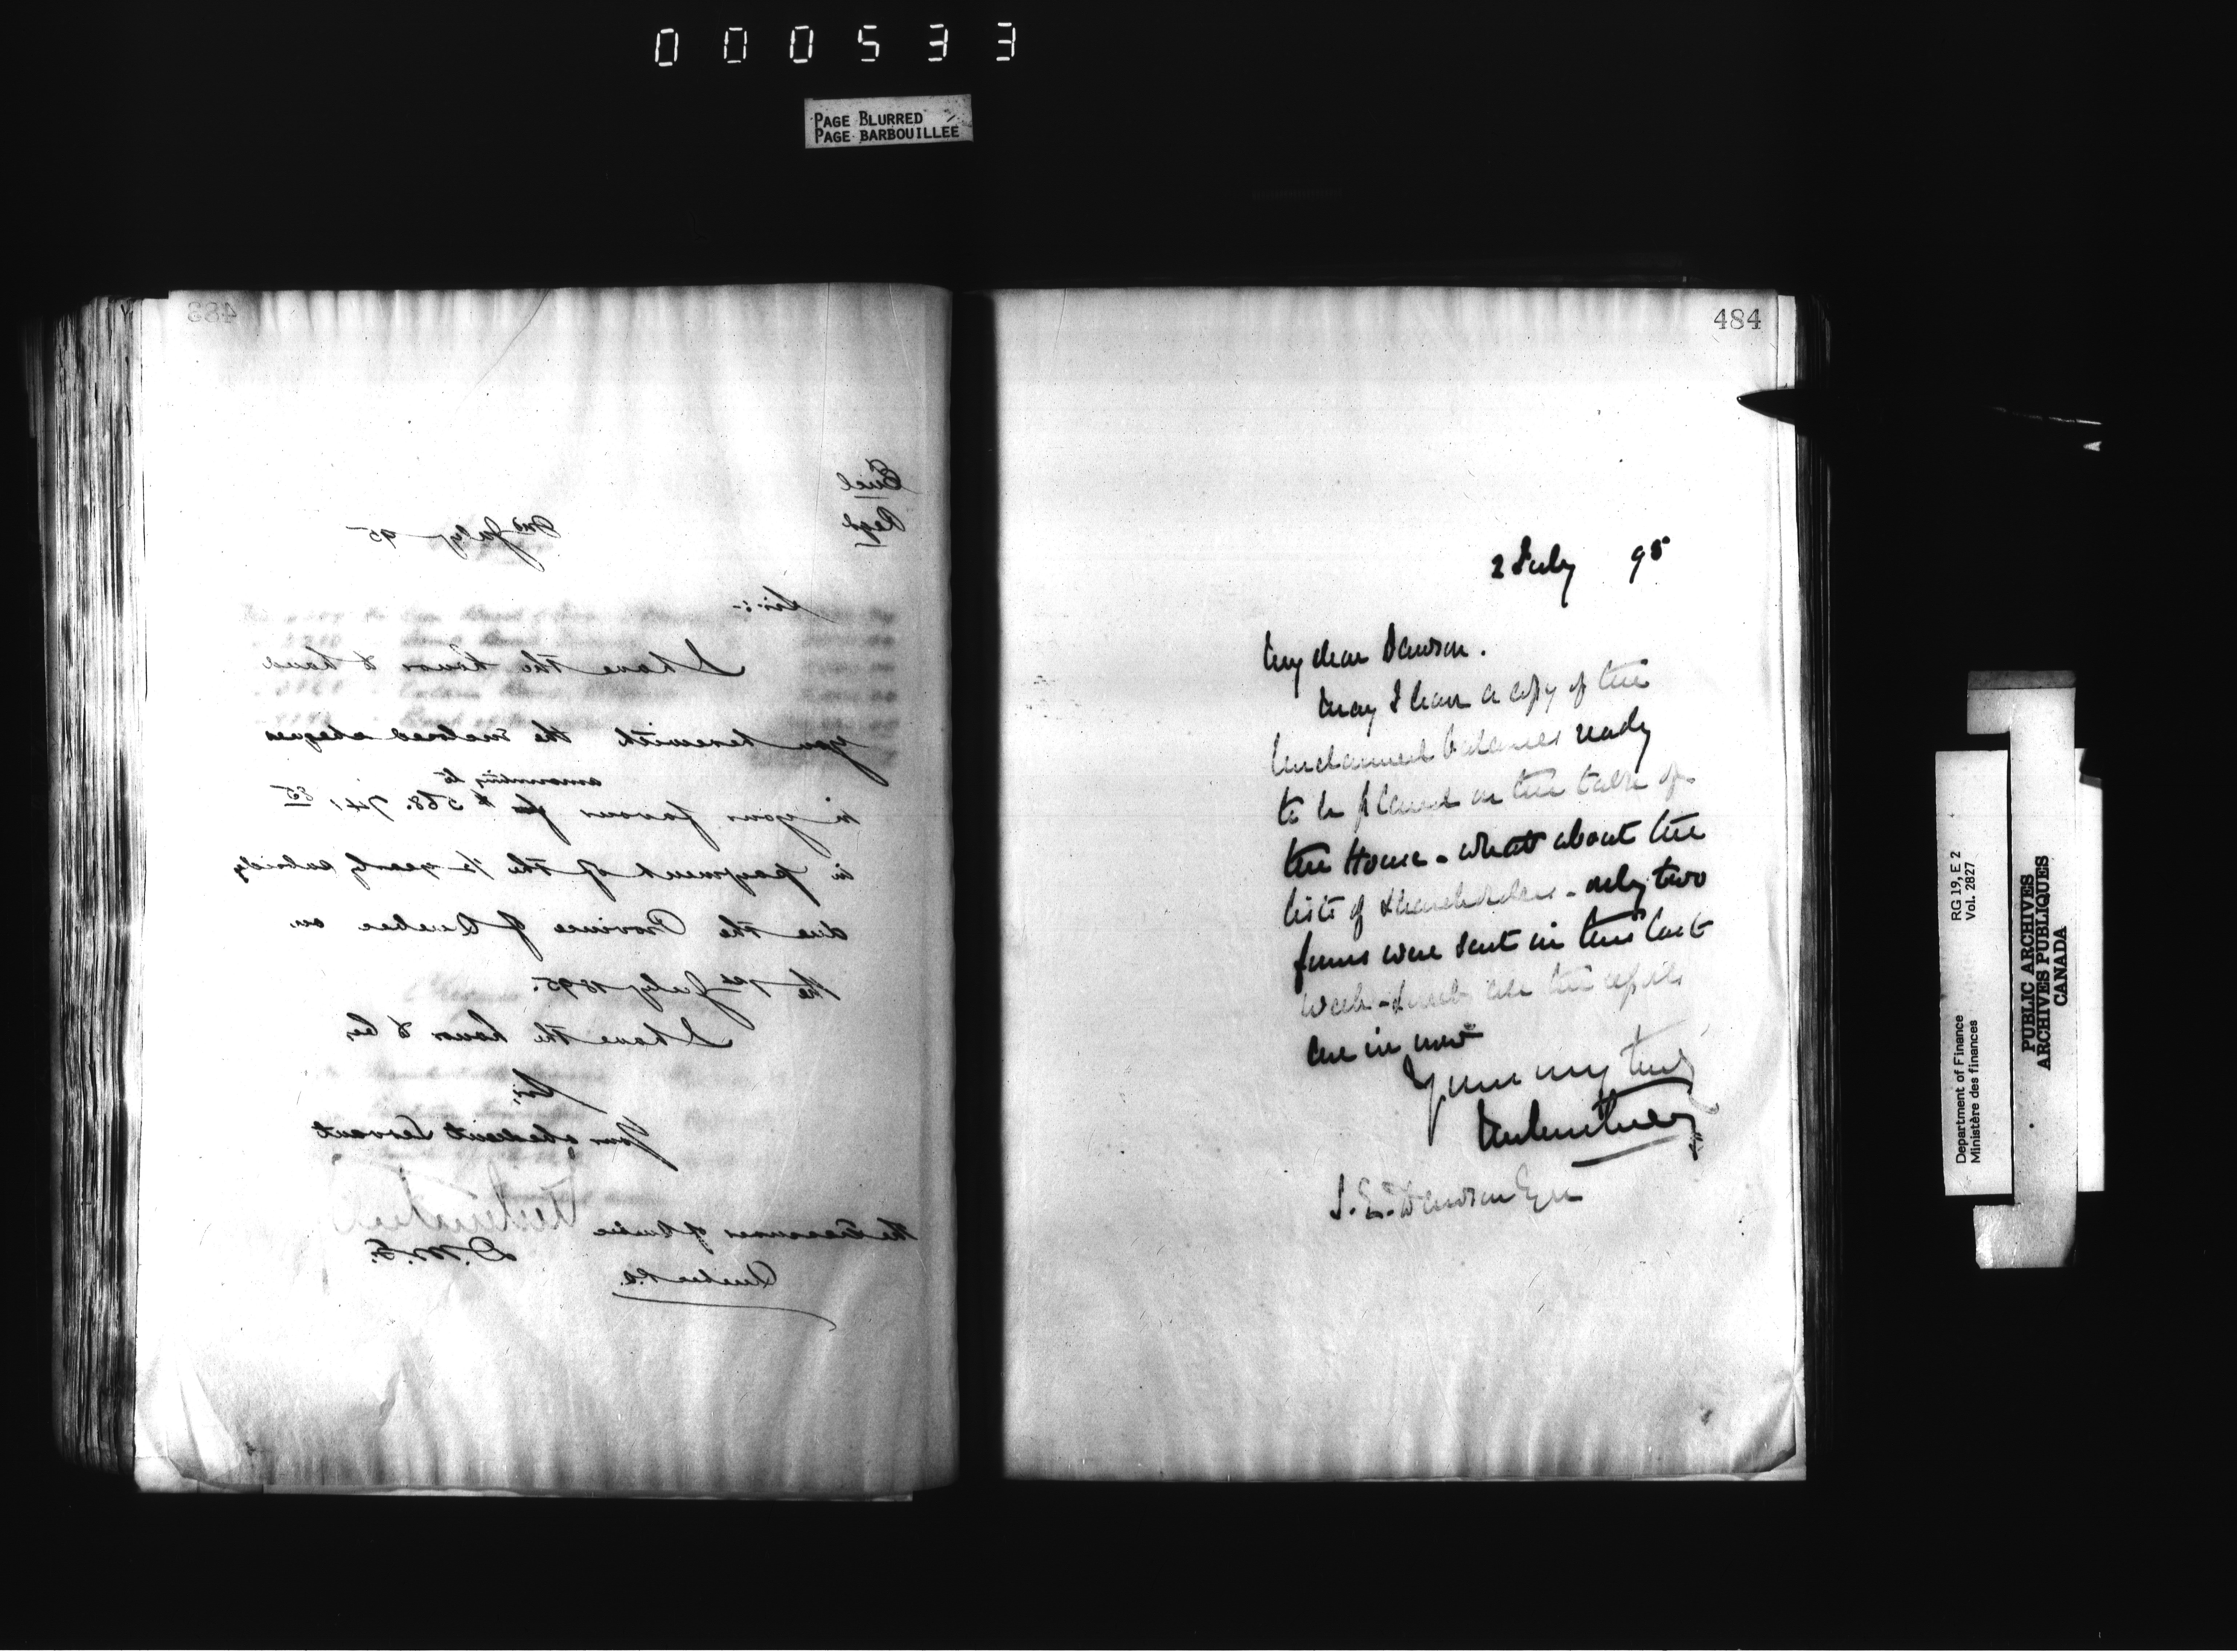 000533
PAGE BLURRED
PAGE BARBOUILLEE
483
Encl
Regd
2nd July 95
Sir:-
I have the honor to hand
you herewith the inclosed cheques
amounting to
in your favour for $ 568.741 85
in payment of the ½ yearly subsidy
due the Province of Quebec on
the 1st July 1895.
I have the honor to be,
Sir,
Your obedient Servant
The Treasurer of Quebec
D.M.F.
Quebec P.Q.
484
2 July 95
My dear Dawson.
May I have a copy of the
Unclaimed balances ready
to be placed on the table of
the House - what about the
lists of shareholders - only two
forms were sent in this last
week - and all the
are in now
Yours very truly
S. E. Dawson Esq
Department of Finance RG 19, E 2
Ministère des finances Vol. 2827
PUBLIC ARCHIVES
ARCHIVES PUBLIQUES
CANADA